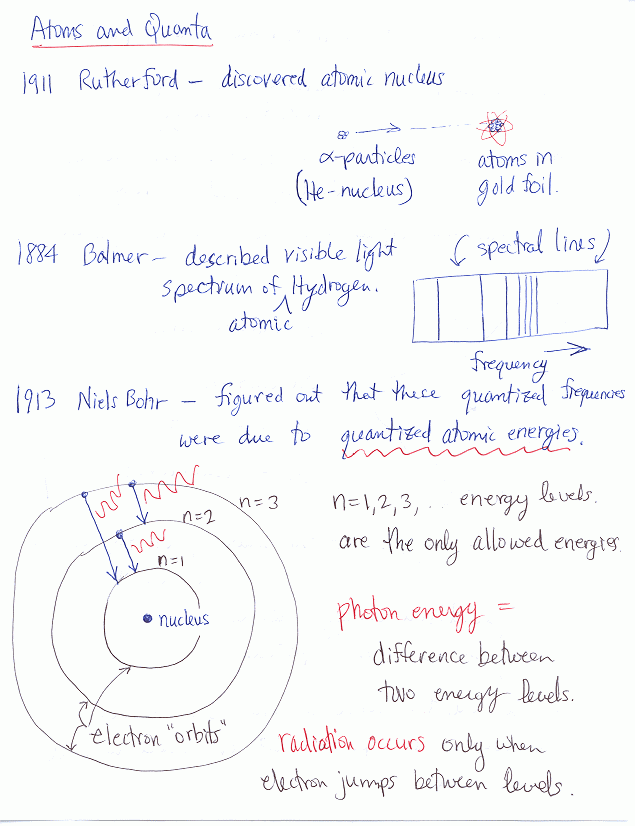 Atoms and Quanta
1911 Rutherford – discovered atomic nucleus
α-particles
(He-nucleus)
atoms in
gold foil.
1884 Balmer – described visible light
spectrum of Hydrogen.
atomic
spectral lines
frequency
1913 Niels Bohr – figured out that these quantized frequencies
were due to quantized atomic energies.
n=3
n=2
n=1
nucleus
electron "orbits"
n=1,2,3,.. energy levels.
are the only allowed energies.
photon energy =
difference between
two energy levels.
radiation occurs only when
electron jumps between levels.